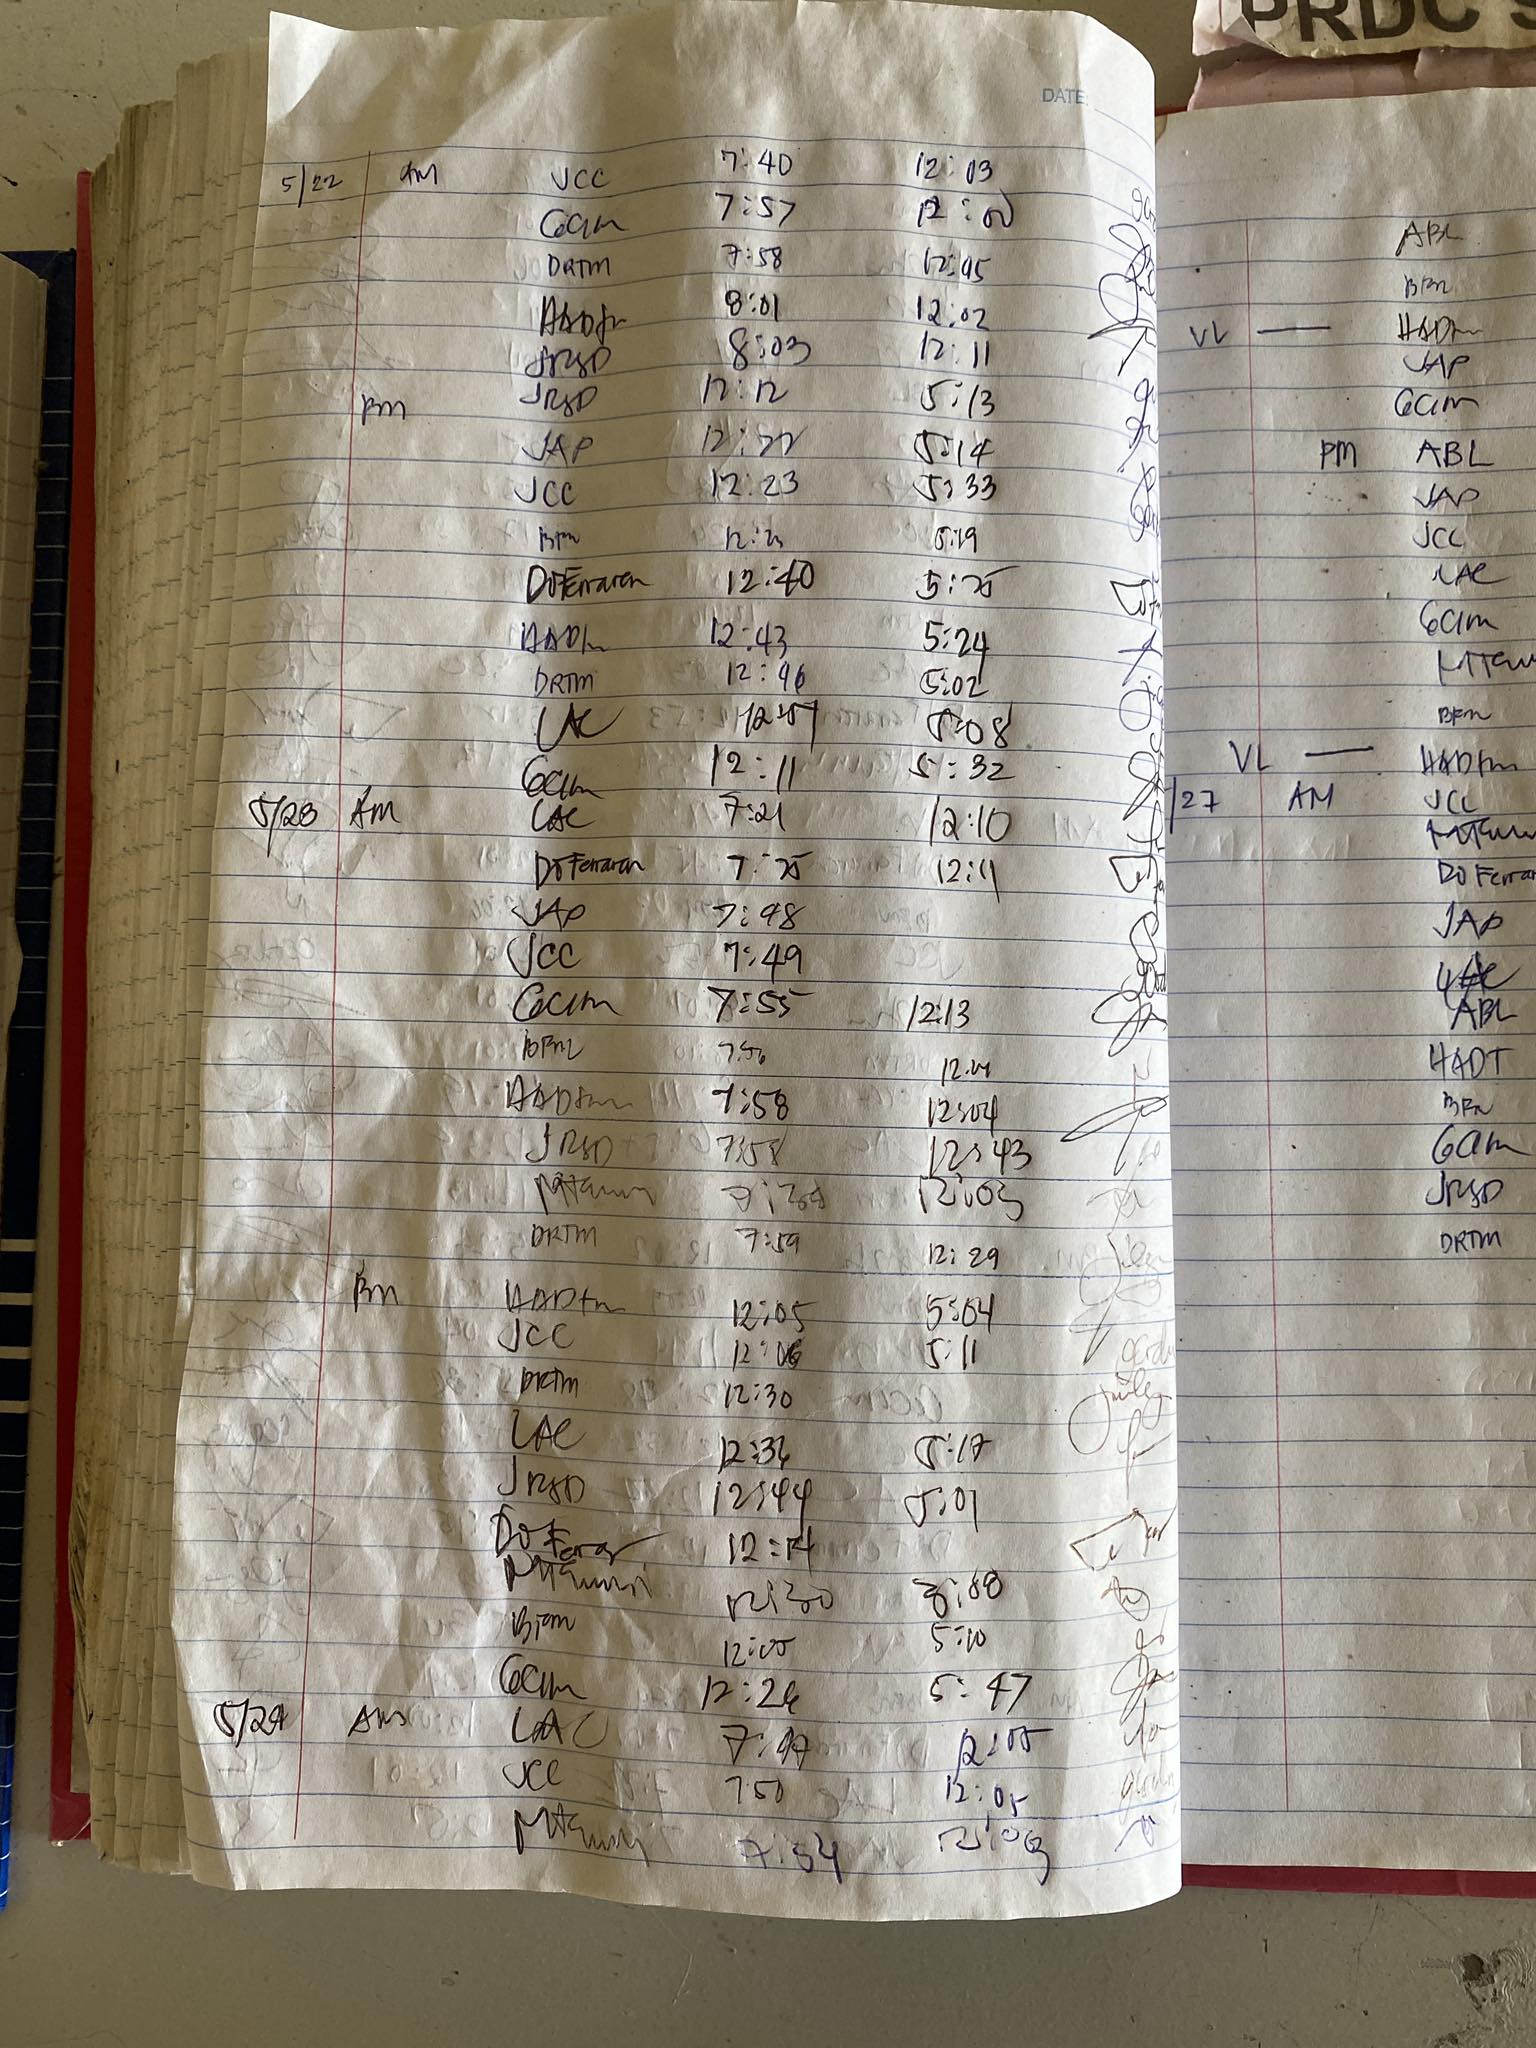 PRDC S
DATE:
5/22 AM JCC 7:40 12:03
GCIM 7:57 12:00
DRTM 7:58 12:05
HADtm 8:01 12:02
JRSD 8:03 12:11
PM JRSD 12:12 5:13
JAP 12:22 5:14
JCC 12:23 5:33
BFM 5:19
DOFerraren 12:40 5:25
HADtm 12:43 5:24
DRTM 12:46 5:02
LAC 5:08
GCIM 12:11 5:32
5/28 AM LAC 7:21 12:10
DOFerraren 7:25 12:11
JAP 7:48
JCC 7:49
GCIM 7:55 12:13
BFM 7:56
HADtm 7:58 12:04
JRSD 7:58 12:43
12:03
DRTM 7:59 12:29
PM HADtm 12:05 5:04
JCC 12:06 5:11
DRTM 12:30
LAC 12:36 5:17
JRSD 12:44 5:01
DOFerrar 12:14
12:30
BFM 12:05 5:10
GCIM 12:26 5:47
5/29 AM LAC 7:47 12:05
JCC 7:50 12:05
7:54 12:03
ABL
BFM
VL — HADtm
JAP
GCIM
PM ABL
JAP
JCC
LAC
GCIM
BFM
VL — HADtm
/27 AM JCC
DOFerrar
JAP
LAC
ABL
HADT
BFM
GCIM
JRSD
DRTM